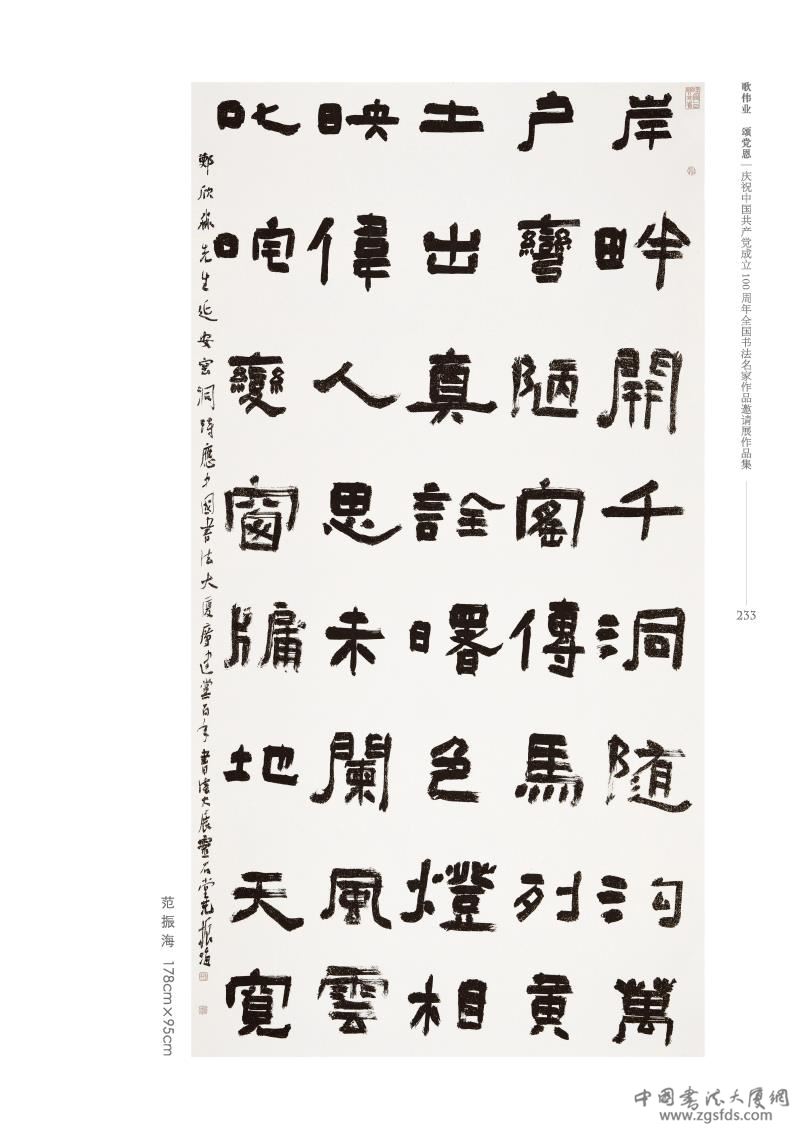 歌伟业 颂党恩 | 庆祝中国共产党成立100周年全国书法名家作品邀请展作品集
233
岸畔開千洞随沟萬
户彎陋窰傳馬列黄
土出真詮曙色燈相
映偉人思未闌風雲
叱咤變窗牖地天寛
鄭欣淼先生延安窑洞詩應中國書法大廈慶建黨百年書法大展靈石堂范振海
范振海 178cm×95cm
中国書法大厦網
www.zgsfds.com